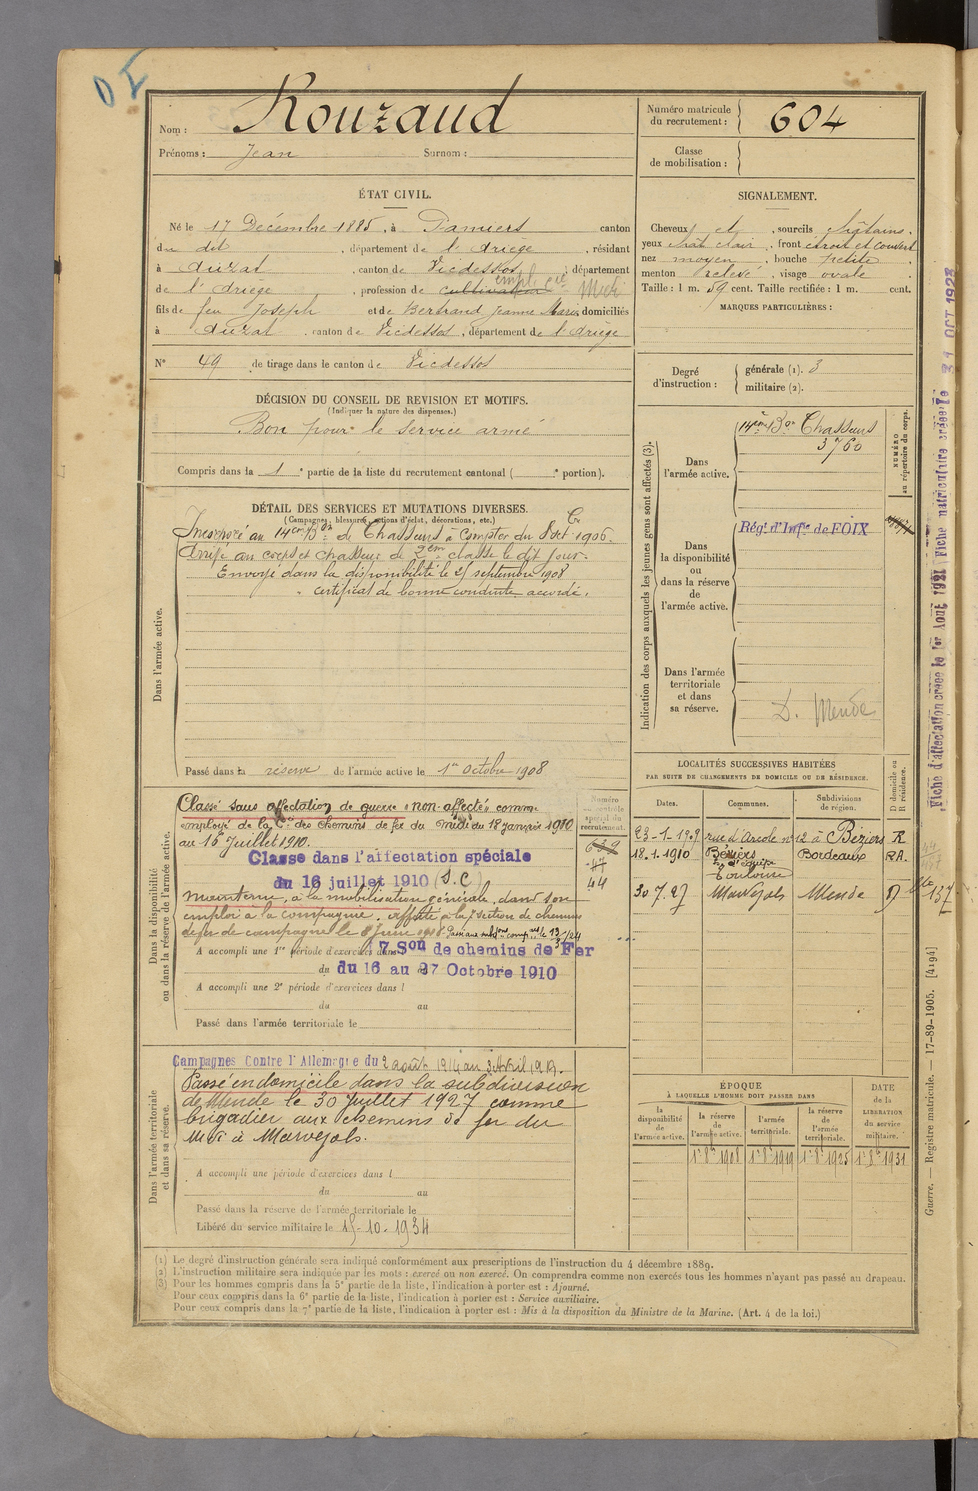 Nom : Rouzaud
Prénoms : Jean Surnom :
Numéro matricule du recrutement : 604
Classe de mobilisation :
ÉTAT CIVIL.
Né le 17 Décembre 1885, à Pamiers canton
du dit, département de l'Ariège, résidant
à Auzat, canton de Vicdessos, département
de l'Ariège, profession de cultivateur empl. Cie Midi
fils de feu Joseph et de Bertrand Jeanne Marie domiciliés
à Auzat canton de Vicdessos, département de l'Ariège
N° 49 de tirage dans le canton de Vicdessos
SIGNALEMENT.
Cheveux et, sourcils châtains.
yeux chât clair, front étroit et couvert
nez moyen, bouche petite,
menton relevé, visage ovale
Taille : 1 m. 59 cent. Taille rectifiée : 1 m. cent.
MARQUES PARTICULIÈRES :
Degré d'instruction : générale (1). 3
militaire (2).
DÉCISION DU CONSEIL DE REVISION ET MOTIFS.
(Indiquer la nature des dispenses.)
Bon pour le service armé
Compris dans la 1e partie de la liste du recrutement cantonal ( e portion).
DÉTAIL DES SERVICES ET MUTATIONS DIVERSES.
(Campagnes, blessures, actions d'éclat, décorations, etc.)
Dans l'armée active.
Incorporé au 14em Bon de Chasseurs à compter du 8 Oct 1906.
Arrivé au corps et chasseur de 2em classe le dit jour.
Envoyé dans la disponibilité le 25 septembre 1908
certificat de bonne conduite accordé.
Passé dans la réserve de l'armée active le 1er octobre 1908
Indication des corps auxquels les jeunes gens sont affectés (3).
Dans l'armée active.
14ème Bon Chasseurs
3760
NUMÉRO au répertoire du corps.
Dans la disponibilité ou dans la réserve de l'armée active.
Régt d'Infie de FOIX
Dans l'armée territoriale et dans sa réserve.
D. Mende
Dans la disponibilité ou dans la réserve de l'armée active.
Classé sans affectation de guerre "non affecté" comme
employé de la Cie des chemins de fer du midi du 18 janvier 1910
au 16 Juillet 1910.
Classe dans l'affectation spéciale
du 16 juillet 1910 (S.C)
maintenu, à la mobilisation générale, dans son
emploi à la compagnie. Affecté à la 7e section de chemins
de fer de campagne le 8 Juin 1918.
A accompli une 1re période d'exercices dans 7 Son de chemins de Fer
du du 16 au 27 Octobre 1910
A accompli une 2e période d'exercices dans l
du au
Passé dans l'armée territoriale le
Numéro au contrôle spécial du recrutement.
639
47
44
LOCALITÉS SUCCESSIVES HABITÉES
PAR SUITE DE CHANGEMENTS DE DOMICILE OU DE RÉSIDENCE.
Dates. Communes. Subdivisions de région. D domicile ou R résidence.
23-1-1909 rue d'Arcole n° 12 à Béziers R
18.1.1910 Béziers Bordeaux RA.
Toulouse
30.7.27 Marvejols Mende D
Dans l'armée territoriale et dans sa réserve.
Campagnes Contre l'Allemagne du 2 août 1914 au 3 Avril 1919.
Passé en domicile dans la subdivision
de Mende le 30 Juillet 1927 comme
brigadier aux chemins de fer du
Midi à Marvejols.
A accompli une période d'exercices dans l
du au
Passé dans la réserve de l'armée territoriale le
Libéré du service militaire le 15-10-1934
ÉPOQUE
À LAQUELLE L'HOMME DOIT PASSER DANS
la disponibilité de l'armée active. la réserve de l'armée active. l'armée territoriale. la réserve de l'armée territoriale.
DATE de la LIBÉRATION du service militaire.
1er 8bre 1908 1er 8bre 1919 1er 8bre 1925 1er 8bre 1931
(1) Le degré d'instruction générale sera indiqué conformément aux prescriptions de l'instruction du 4 décembre 1889.
(2) L'instruction militaire sera indiquée par les mots : exercé ou non exercé. On comprendra comme non exercés tous les hommes n'ayant pas passé au drapeau.
(3) Pour les hommes compris dans la 5e partie de la liste, l'indication à porter est : Ajourné.
Pour ceux compris dans la 6e partie de la liste, l'indication à porter est : Service auxiliaire.
Pour ceux compris dans la 7e partie de la liste, l'indication à porter est : Mis à la disposition du Ministre de la Marine. (Art. 4 de la loi.)
Guerre. — Registre matricule. — 17-89-1905. [4194]
Fiche d'affectation créée le 1er Août 1921 Fiche matriculaire créée le 31 OCT 1928
137